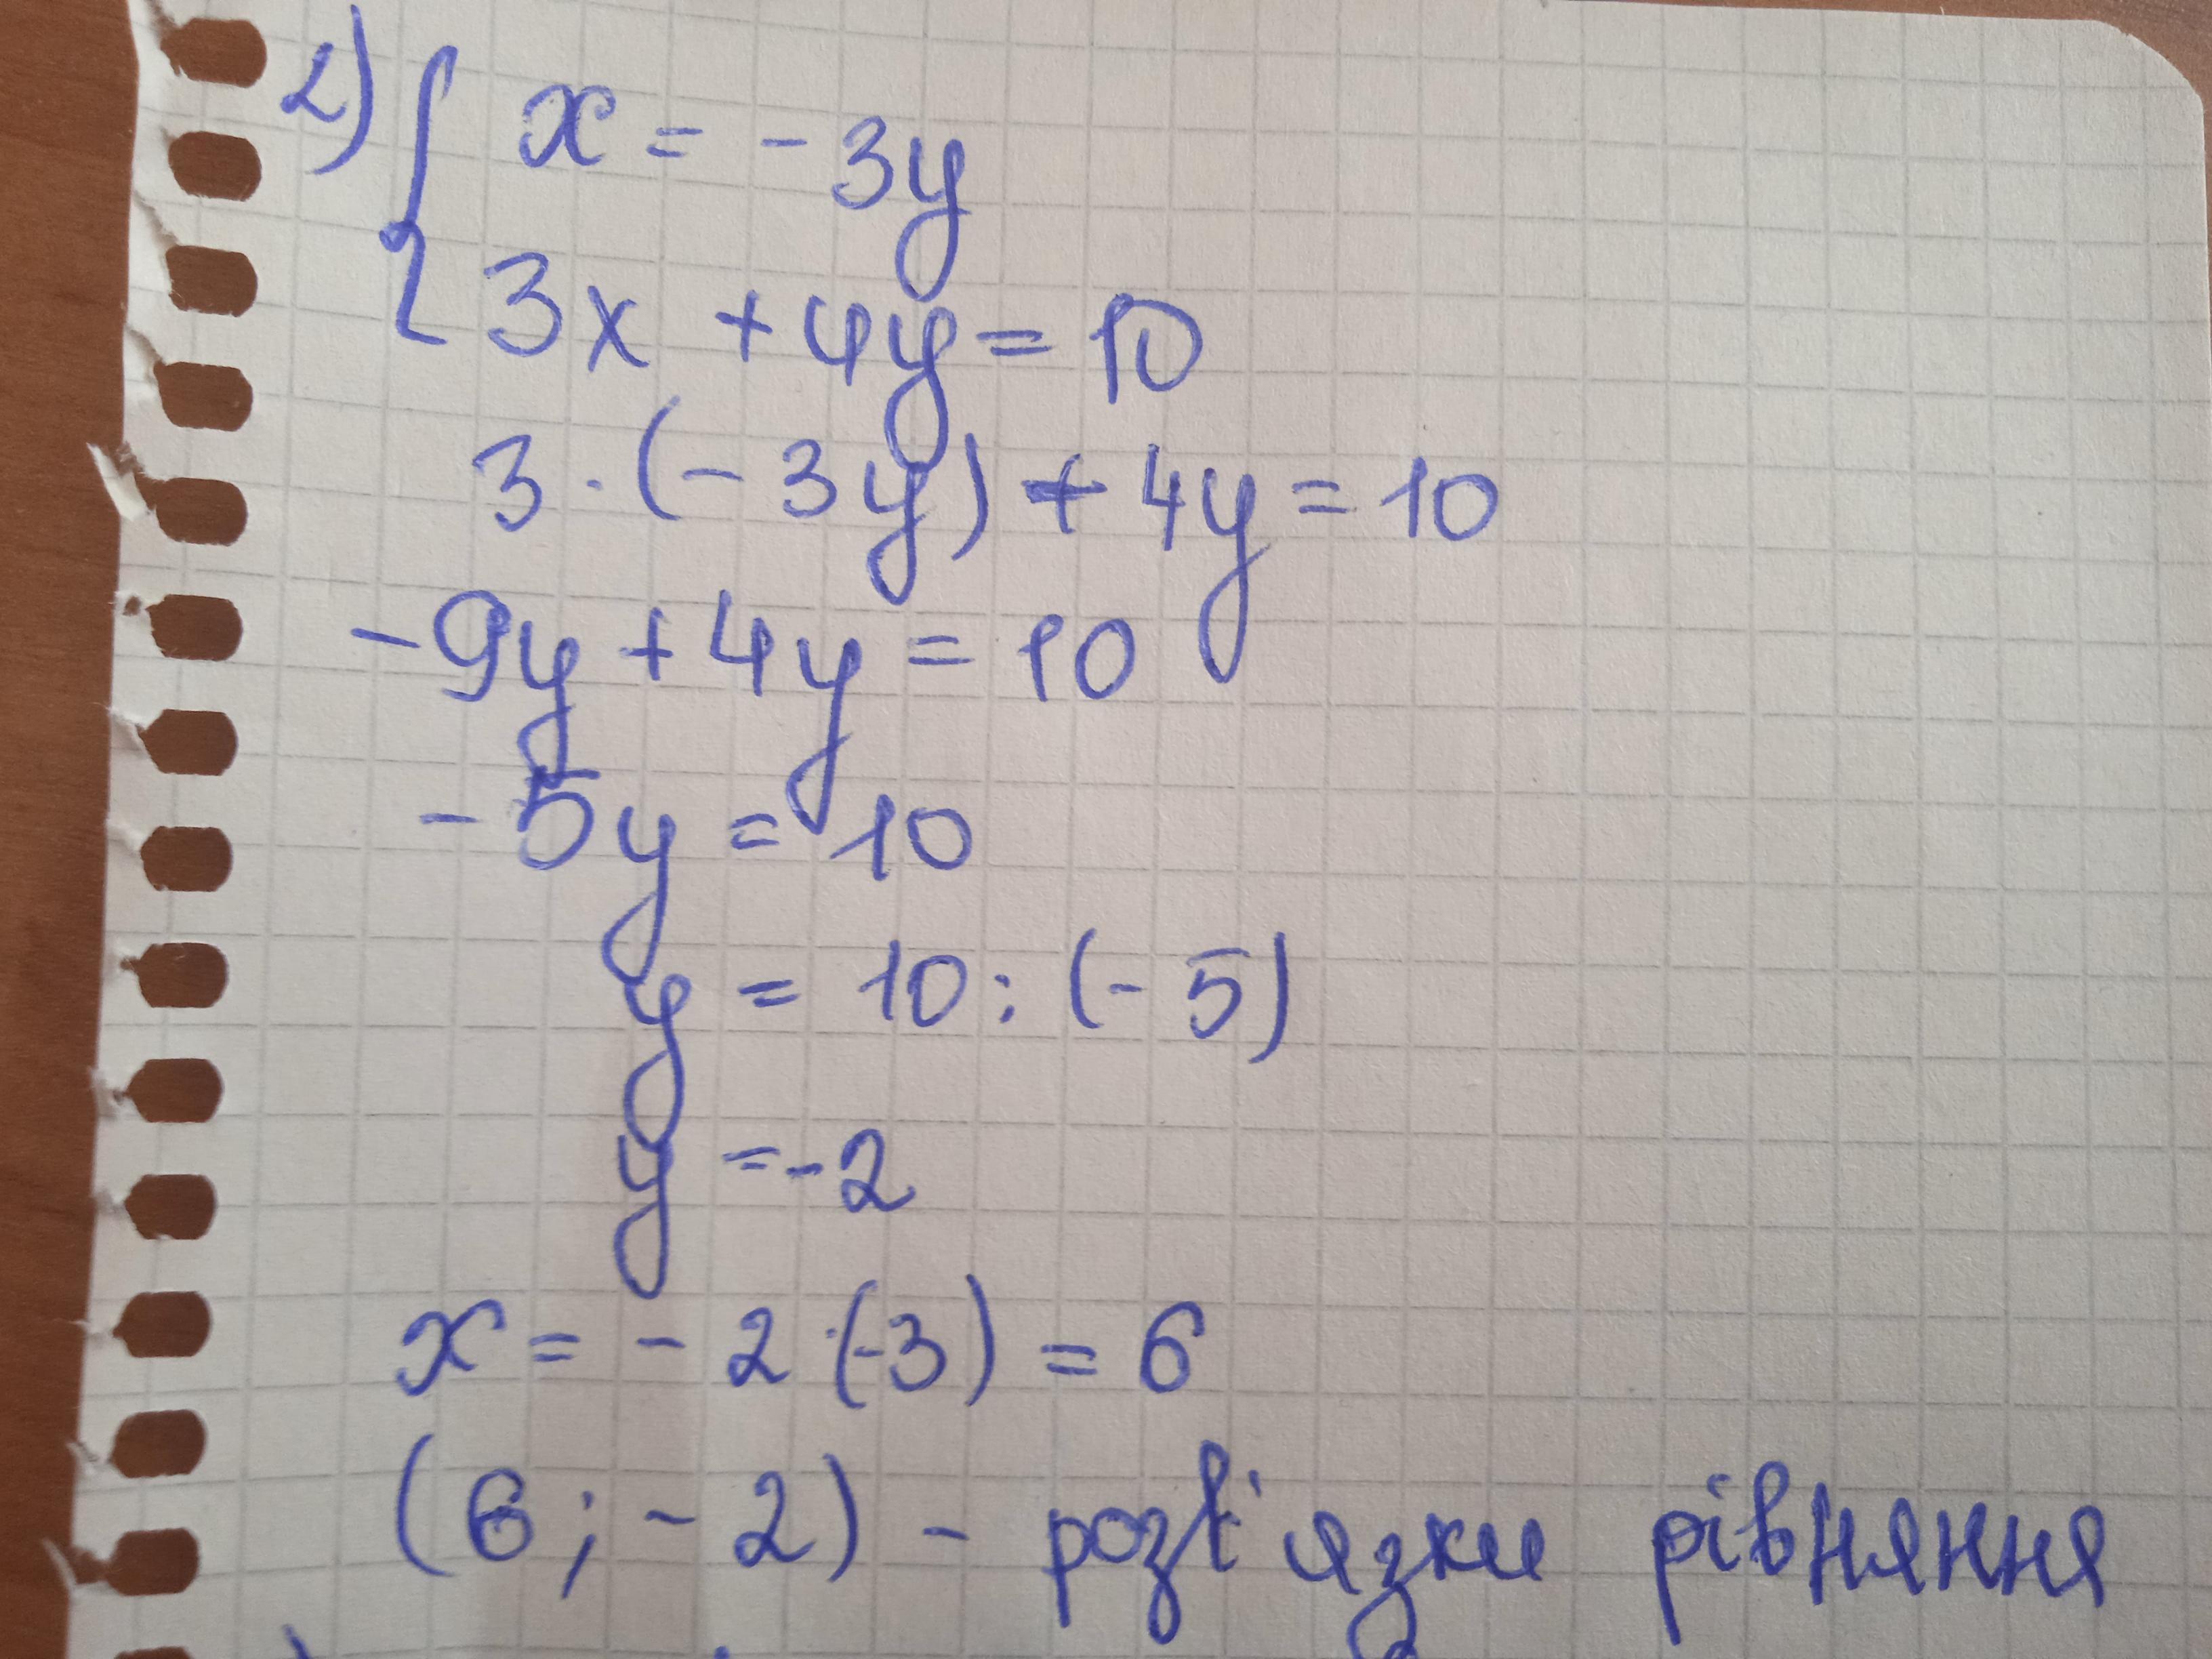 2) { x = - 3y
3x + 4y = 10
3 · (- 3y) + 4y = 10
- 9y + 4y = 10
- 5y = 10
y = 10 : (- 5)
y = - 2
x = - 2 · (-3) = 6
(6 ; - 2) - розв'язки рівняння